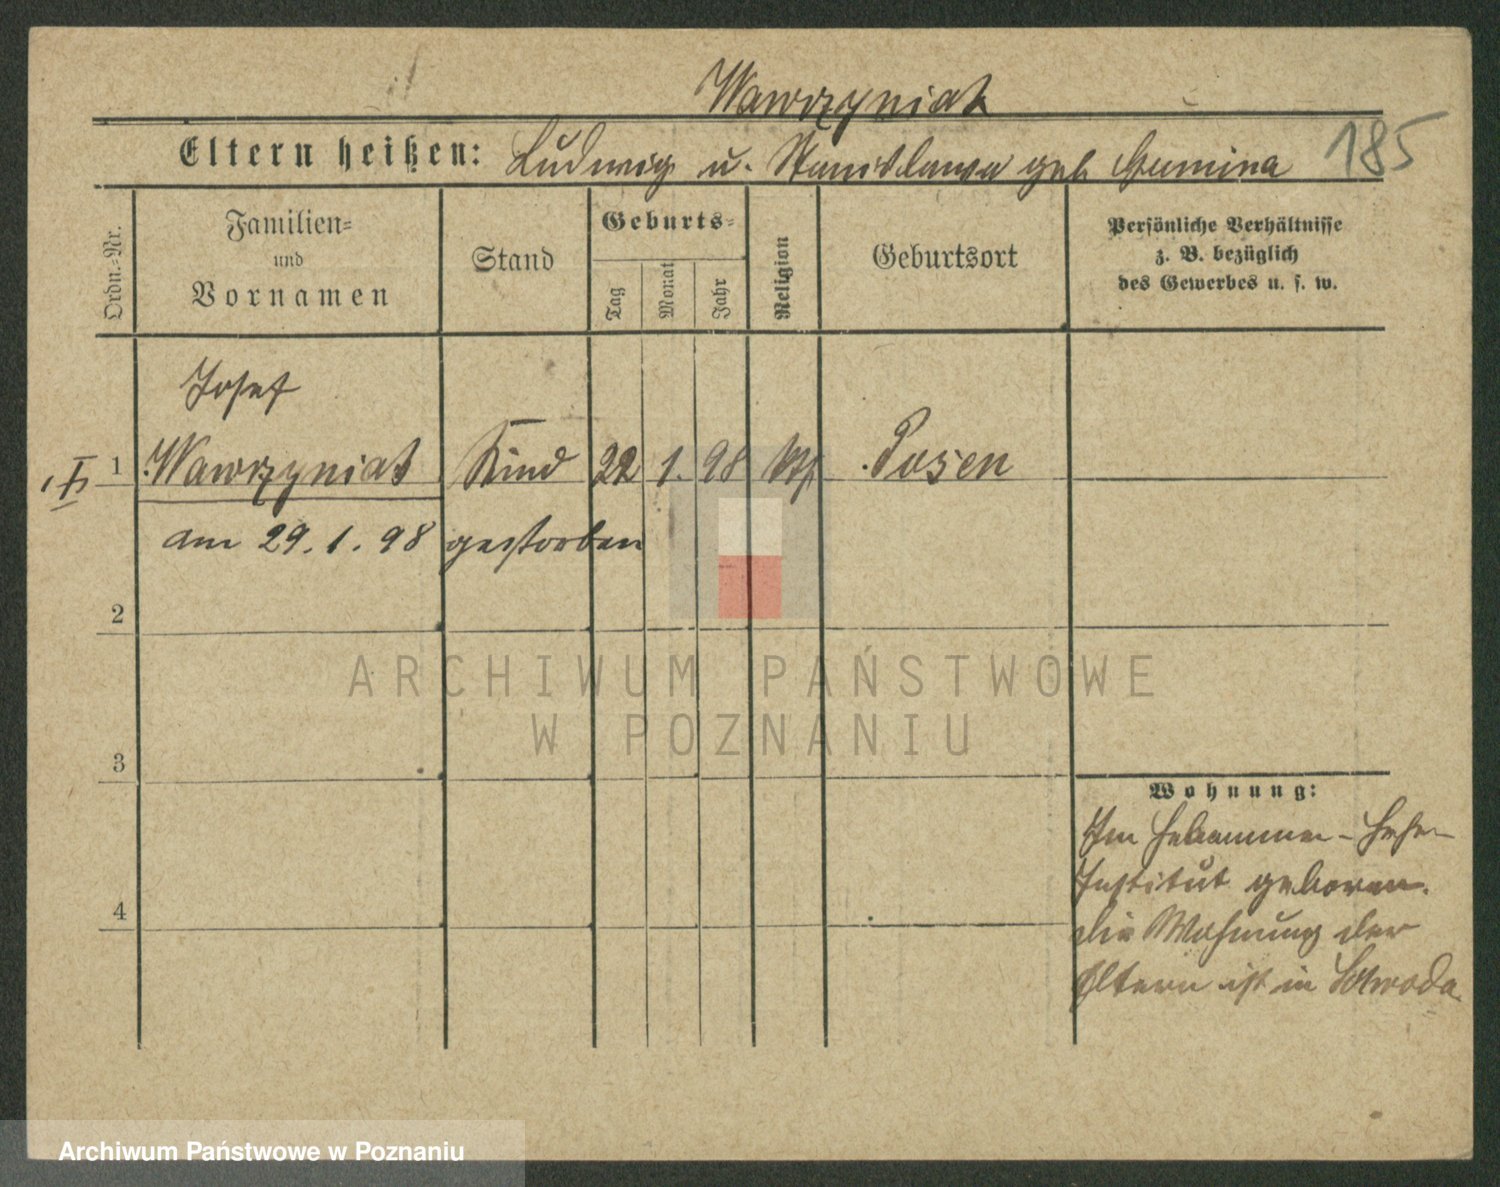 Wawrzyniak
Eltern heißen: Ludwig u. Stanislawa geb 185
Ordn.-Nr.
Familien-
und
Vornamen
Stand
Geburts-
Tag
Monat
Jahr
Religion
Geburtsort
Persönliche Verhältnisse
z. B. bezüglich
des Gewerbes u. s. w.
Josef
1 Wawrzyniak Kind 22 1. 98 Posen
am 29. 1. 98 gestorben
2
ARCHIWUM PAŃSTWOWE
W POZNANIU
3
Wohnung:
Im Hebammen-Lehr-
Institut geboren.
die Wohnung der
4
Eltern ist in
Archiwum Państwowe w Poznaniu